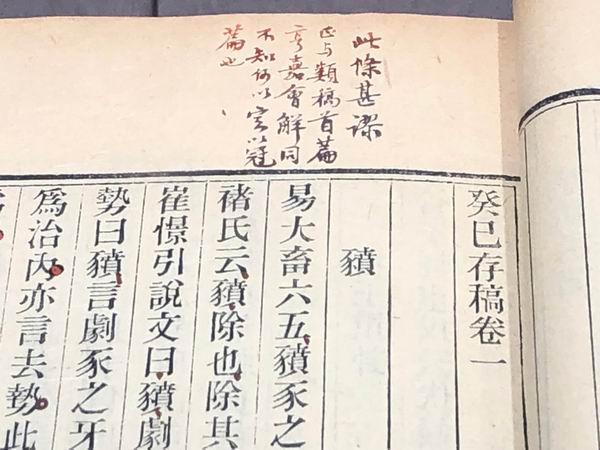 此條甚謬
正与類稿首篇
亨嘉會解同
不知何以冠
篇也
癸巳存稿卷一
豶
易大畜六五豶豕之
褚氏云豶除也除其
崔憬引說文曰豶劇
勢曰豶言劇豕之牙
爲治內亦言去勢此